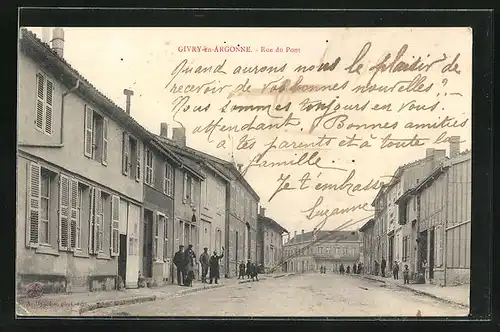 GIVRY-en-ARGONNE. - Rue du Pont
Quand aurons nous le plaisir de
recevoir de vos bonnes nouvelles ?
Nous sommes toujours en vous
attendant. Bonnes amitiés
à tes parents et à toute la
famille
Je t'embrasse
Suzanne